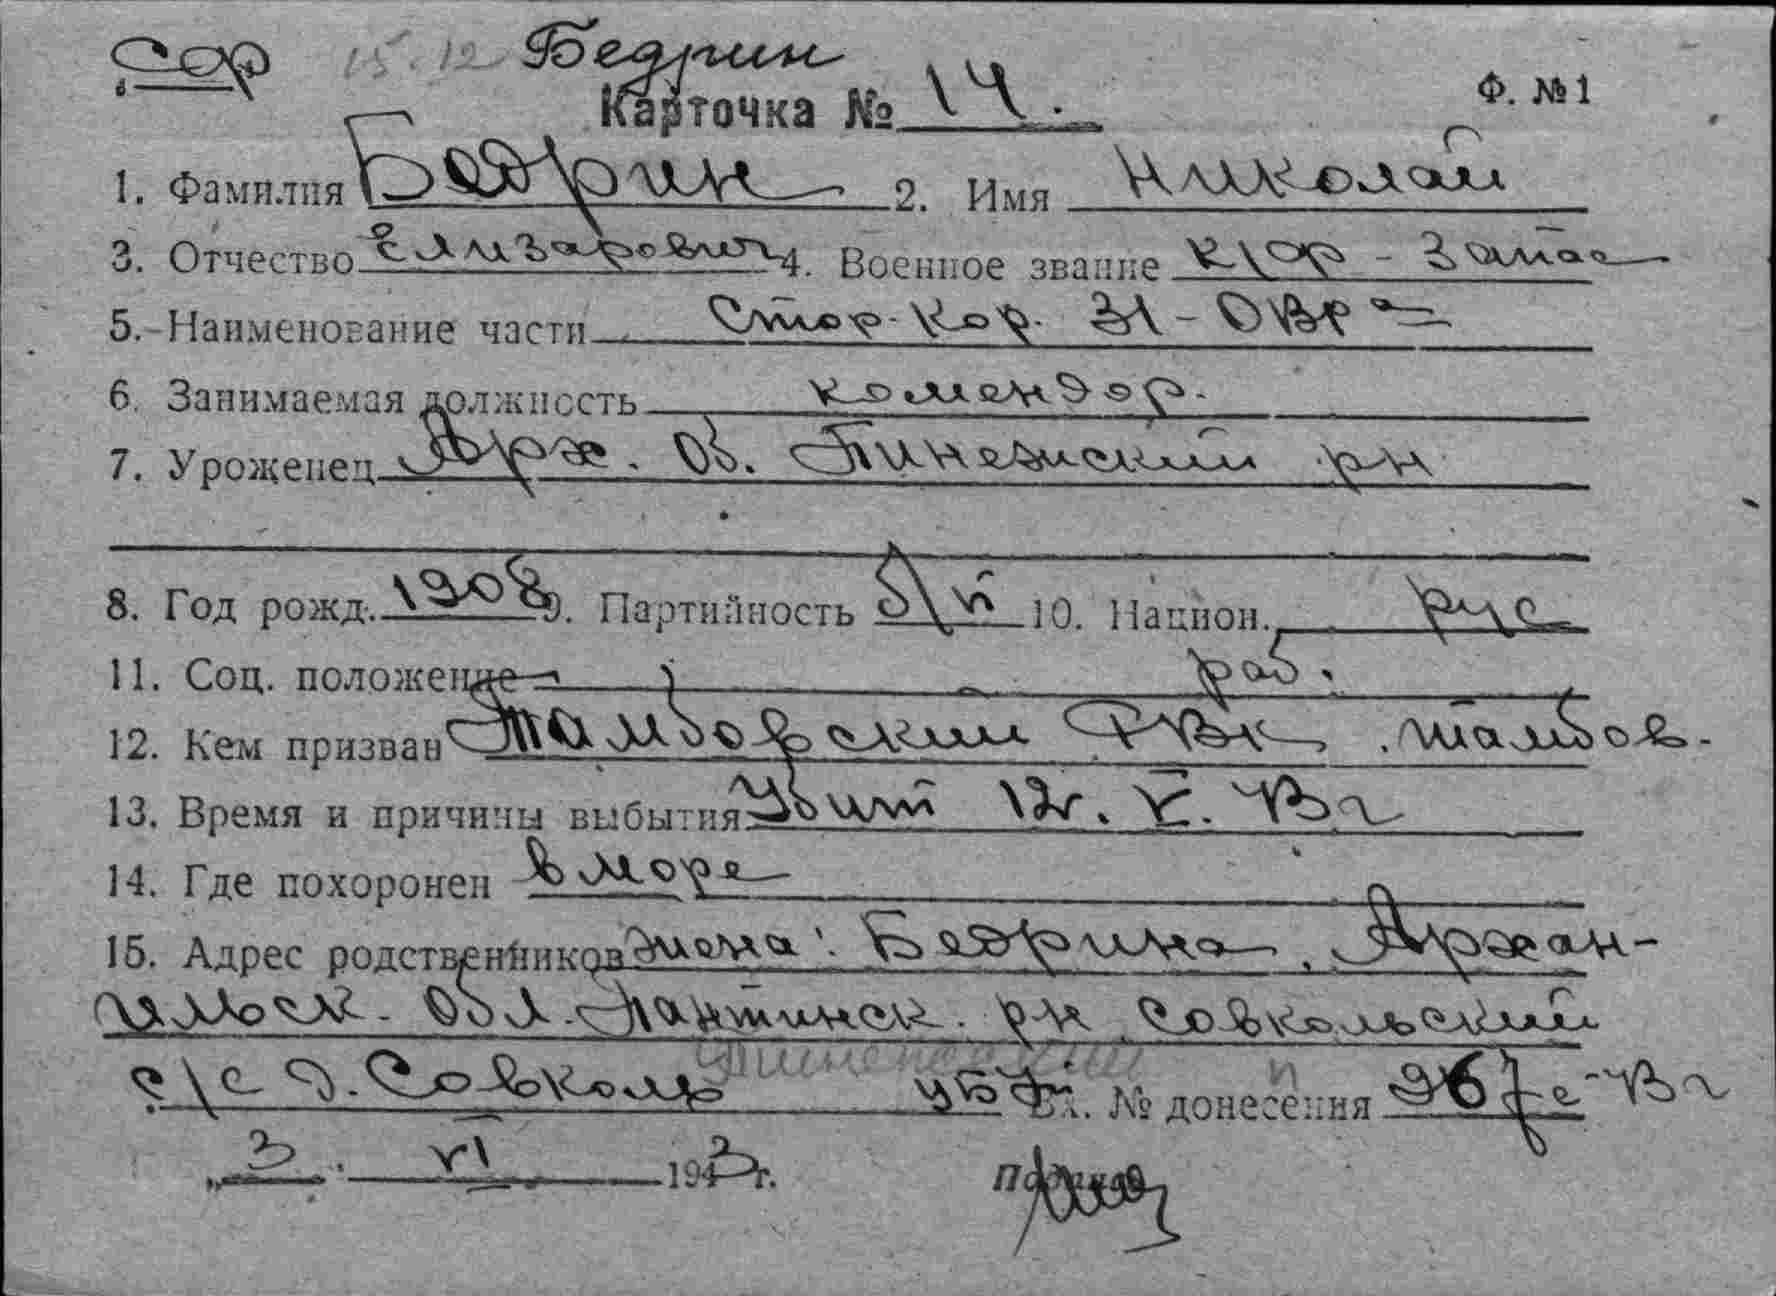 15.12 Бедрин
Карточка № 14. Ф. №1
1. Фамилия Бедрин 2. Имя Николай
3. Отчество Елизарович 4. Военное звание к/ор - запас
5. Наименование части Стор. Кор. ОВР
6. Занимаемая должность комендор.
7. Уроженец Арх. об. Пинежский р-н
8. Год рожд. 1908 9. Партийность б/п 10. Национ. рус
11. Соц. положение раб.
12. Кем призван Тамбовский РВК, Тамбов.
13. Время и причины выбытия Убит V. 43г
14. Где похоронен в море
15. Адрес родственников жена: Бедрина, Архан-
обл. р-н Совпольский
с/с д. Совполье Вх. № донесения 43г
„3“ VI 1943г.